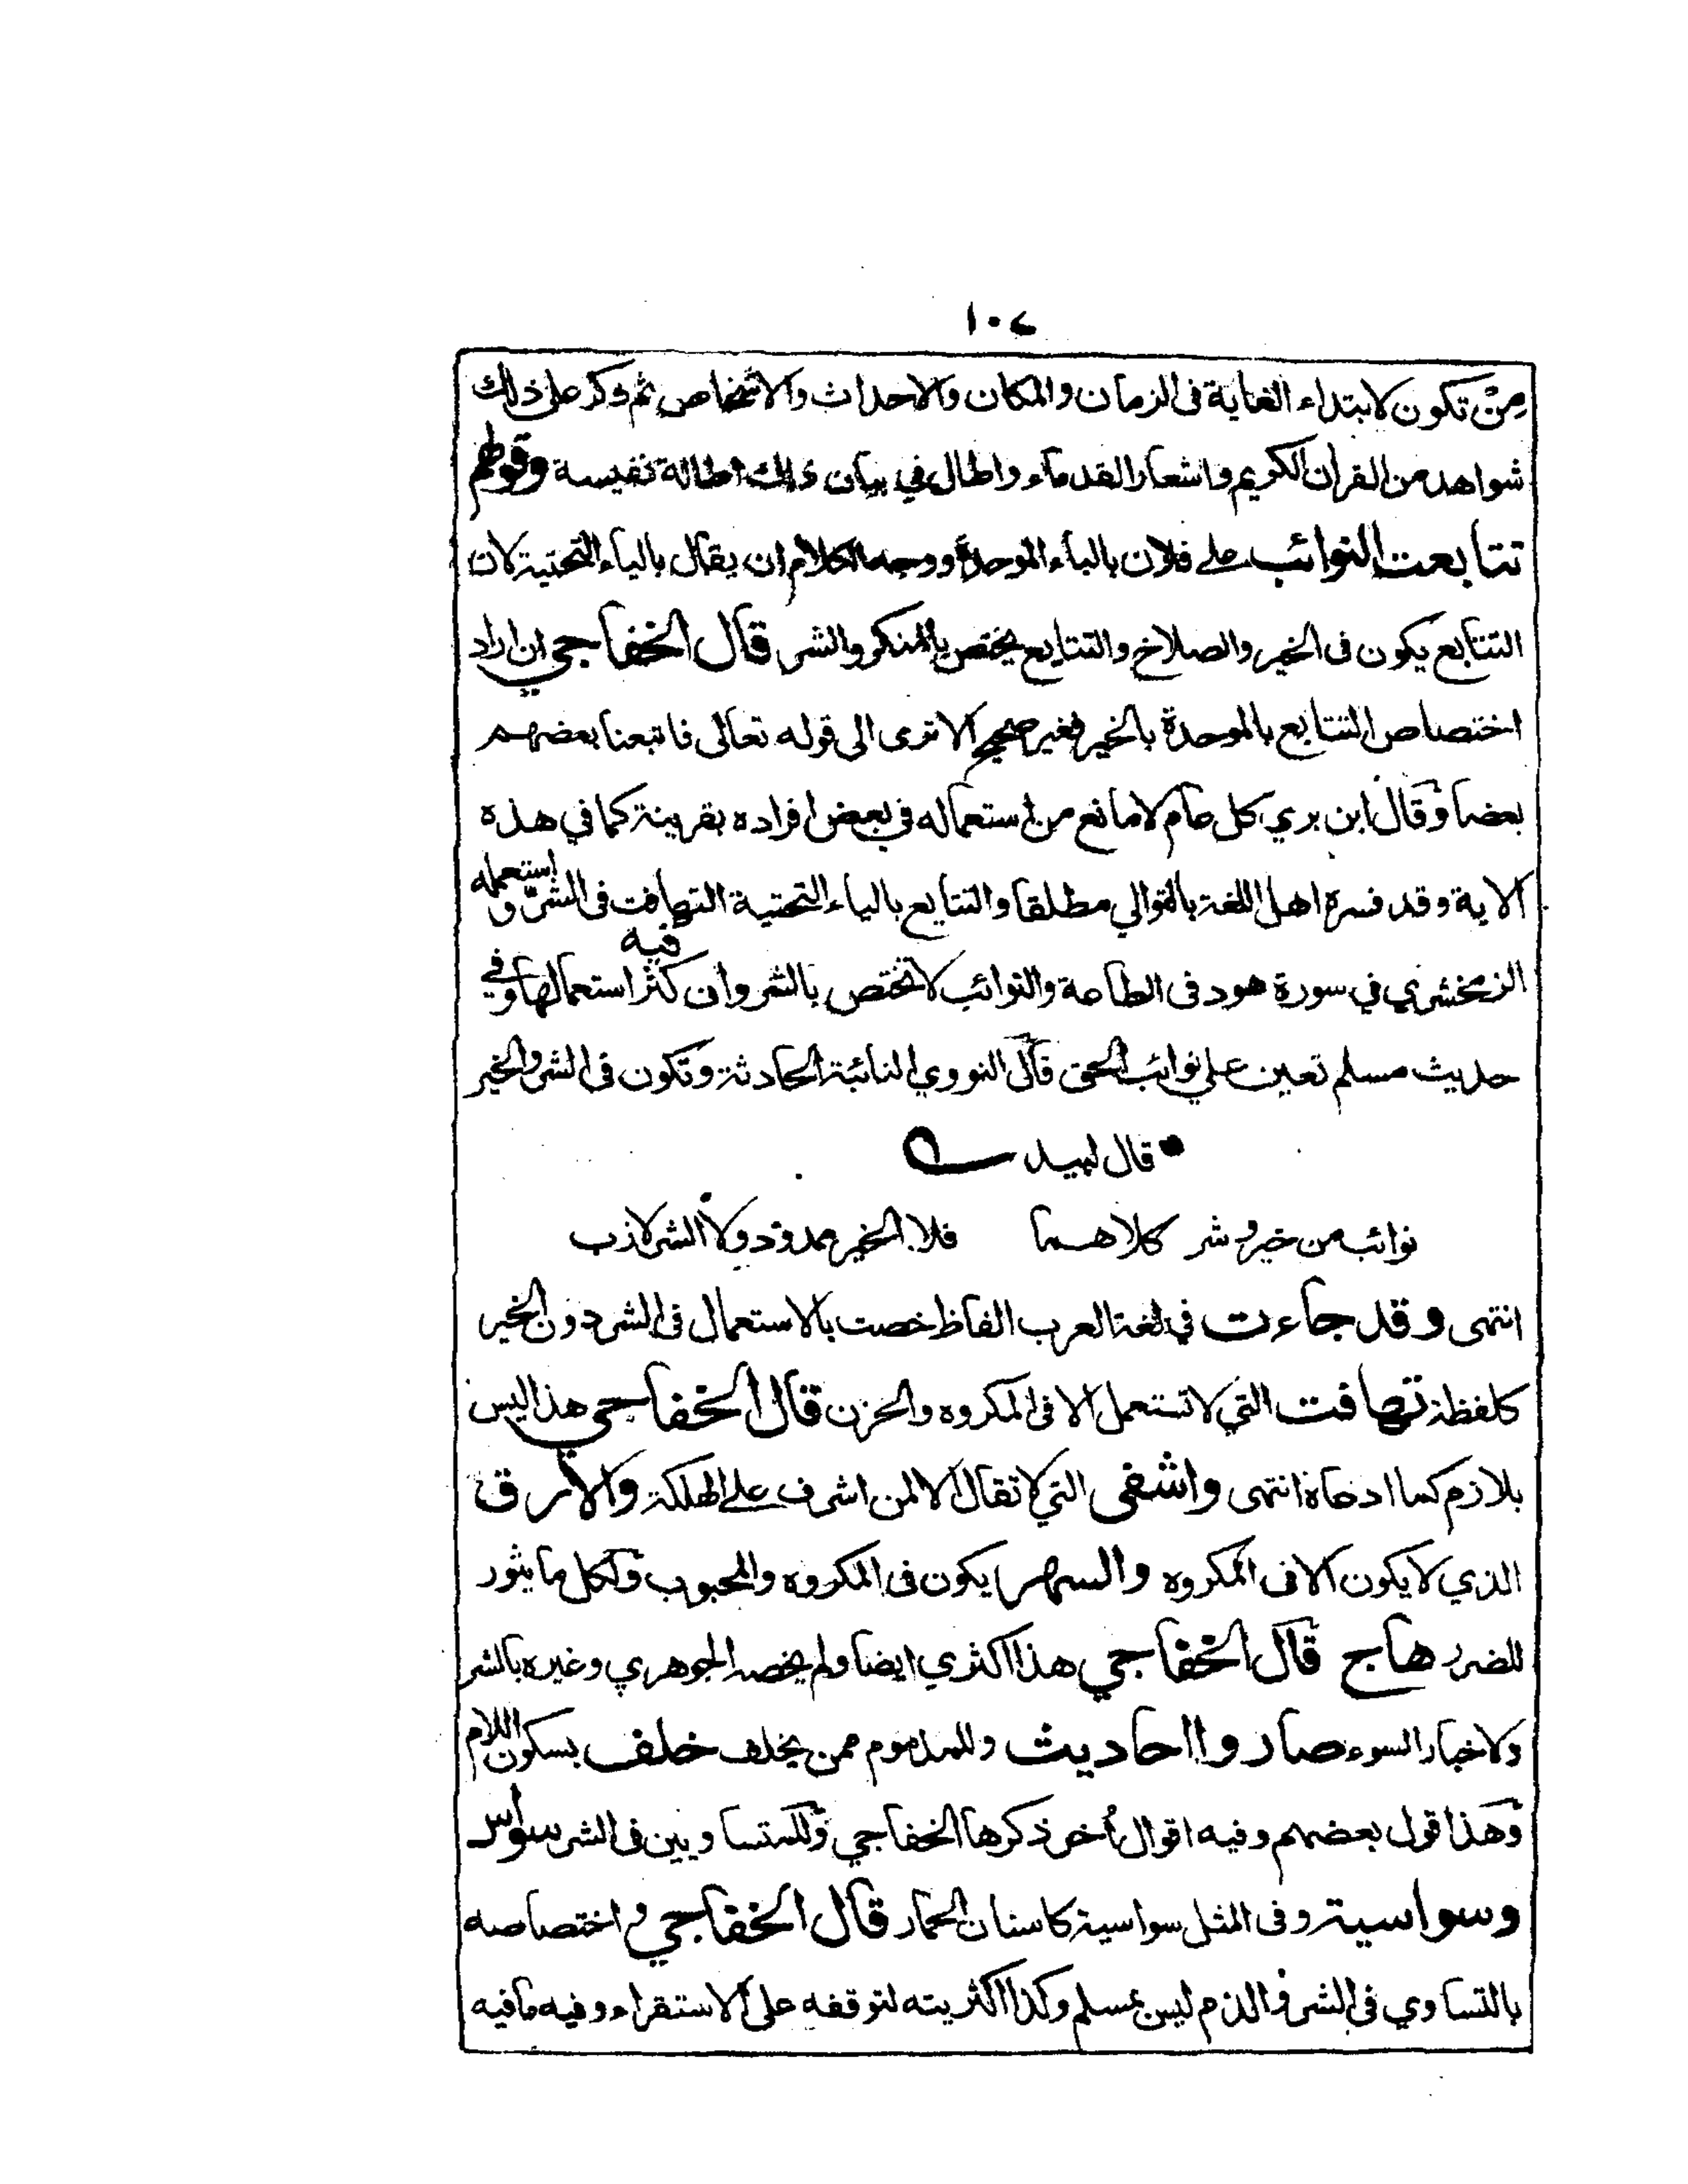 ١٠٧
مِنْ تكون لابتداء الغاية فى الزمان والمكان والاحداث والاشخاص ثم ذكر على ذلك
شواهد من القران الكريم واشعار القدماء واطال في بيان ذلك اطالة نفيسة وقولهم
تتابعت النوائب على فلان بالباء الموحدة ووجه الكلام ان يقال بالياء التحتية لان
التتابع يكون فى الخير والصلاح والتتايع يختص بالمنكر والشر قال الخفاجي ان اراد
اختصاص التتابع بالموحدة بالخير فغير صحيح الا ترى الى قوله تعالى فاتبعنا بعضهم
بعضا وقال ابن بري كل عام لا مانع من استعماله فى بعض افراده بقرينة كما في هذه
الاية وقد فسره اهل اللغة بالتوالي مطلقا والتتايع بالياء التحتية التهافت فى الشر و استعمله
الزمخشري في سورة هود فى الطاعة والنوائب لا تختص بالشر وان كثر استعمالها فيه وفي
حديث مسلم تعين على نوائب الحق قال النووي النائبة الحادثة وتكون فى الشر والخير
قال لبيد
نوائب من خير وشر كلاهما فلا الخير ممدود ولا الشر لازب
انتهى وقد جاءت في لغة العرب الفاظ خصت بالاستعمال فى الشر دون الخير
كلفظة تهافت التي لا تستعمل الا فى المكروه والحزن قال الخفاجي هذا ليس
بلازم كما ادعاه انتهى واشفى التي لا تقال الا لمن اشرف على الهلكة والارق
الذي لا يكون الا فى المكروه والسهر يكون فى المكروه والمحبوب ولكل ما يثور
للضرر هاج قال الخفاجي هذا اكثري ايضا ولم يخصه الجوهري وغيره بالشر
ولاخبار السوء صاروا احاديث وللمذموم ممن يخلف خلف بسكون اللام
وهذا قول بعضهم وفيه اقوال أخر ذكرها الخفاجي وللمتساويين فى الشر سواس
وسواسية وفى المثل سواسية كاسنان الحمار قال الخفاجي و اختصاصه
بالتساوي فى الشر والذم ليس بمسلم وكذا اكثريته لتوقفه على الاستقراء وفيه مافيه